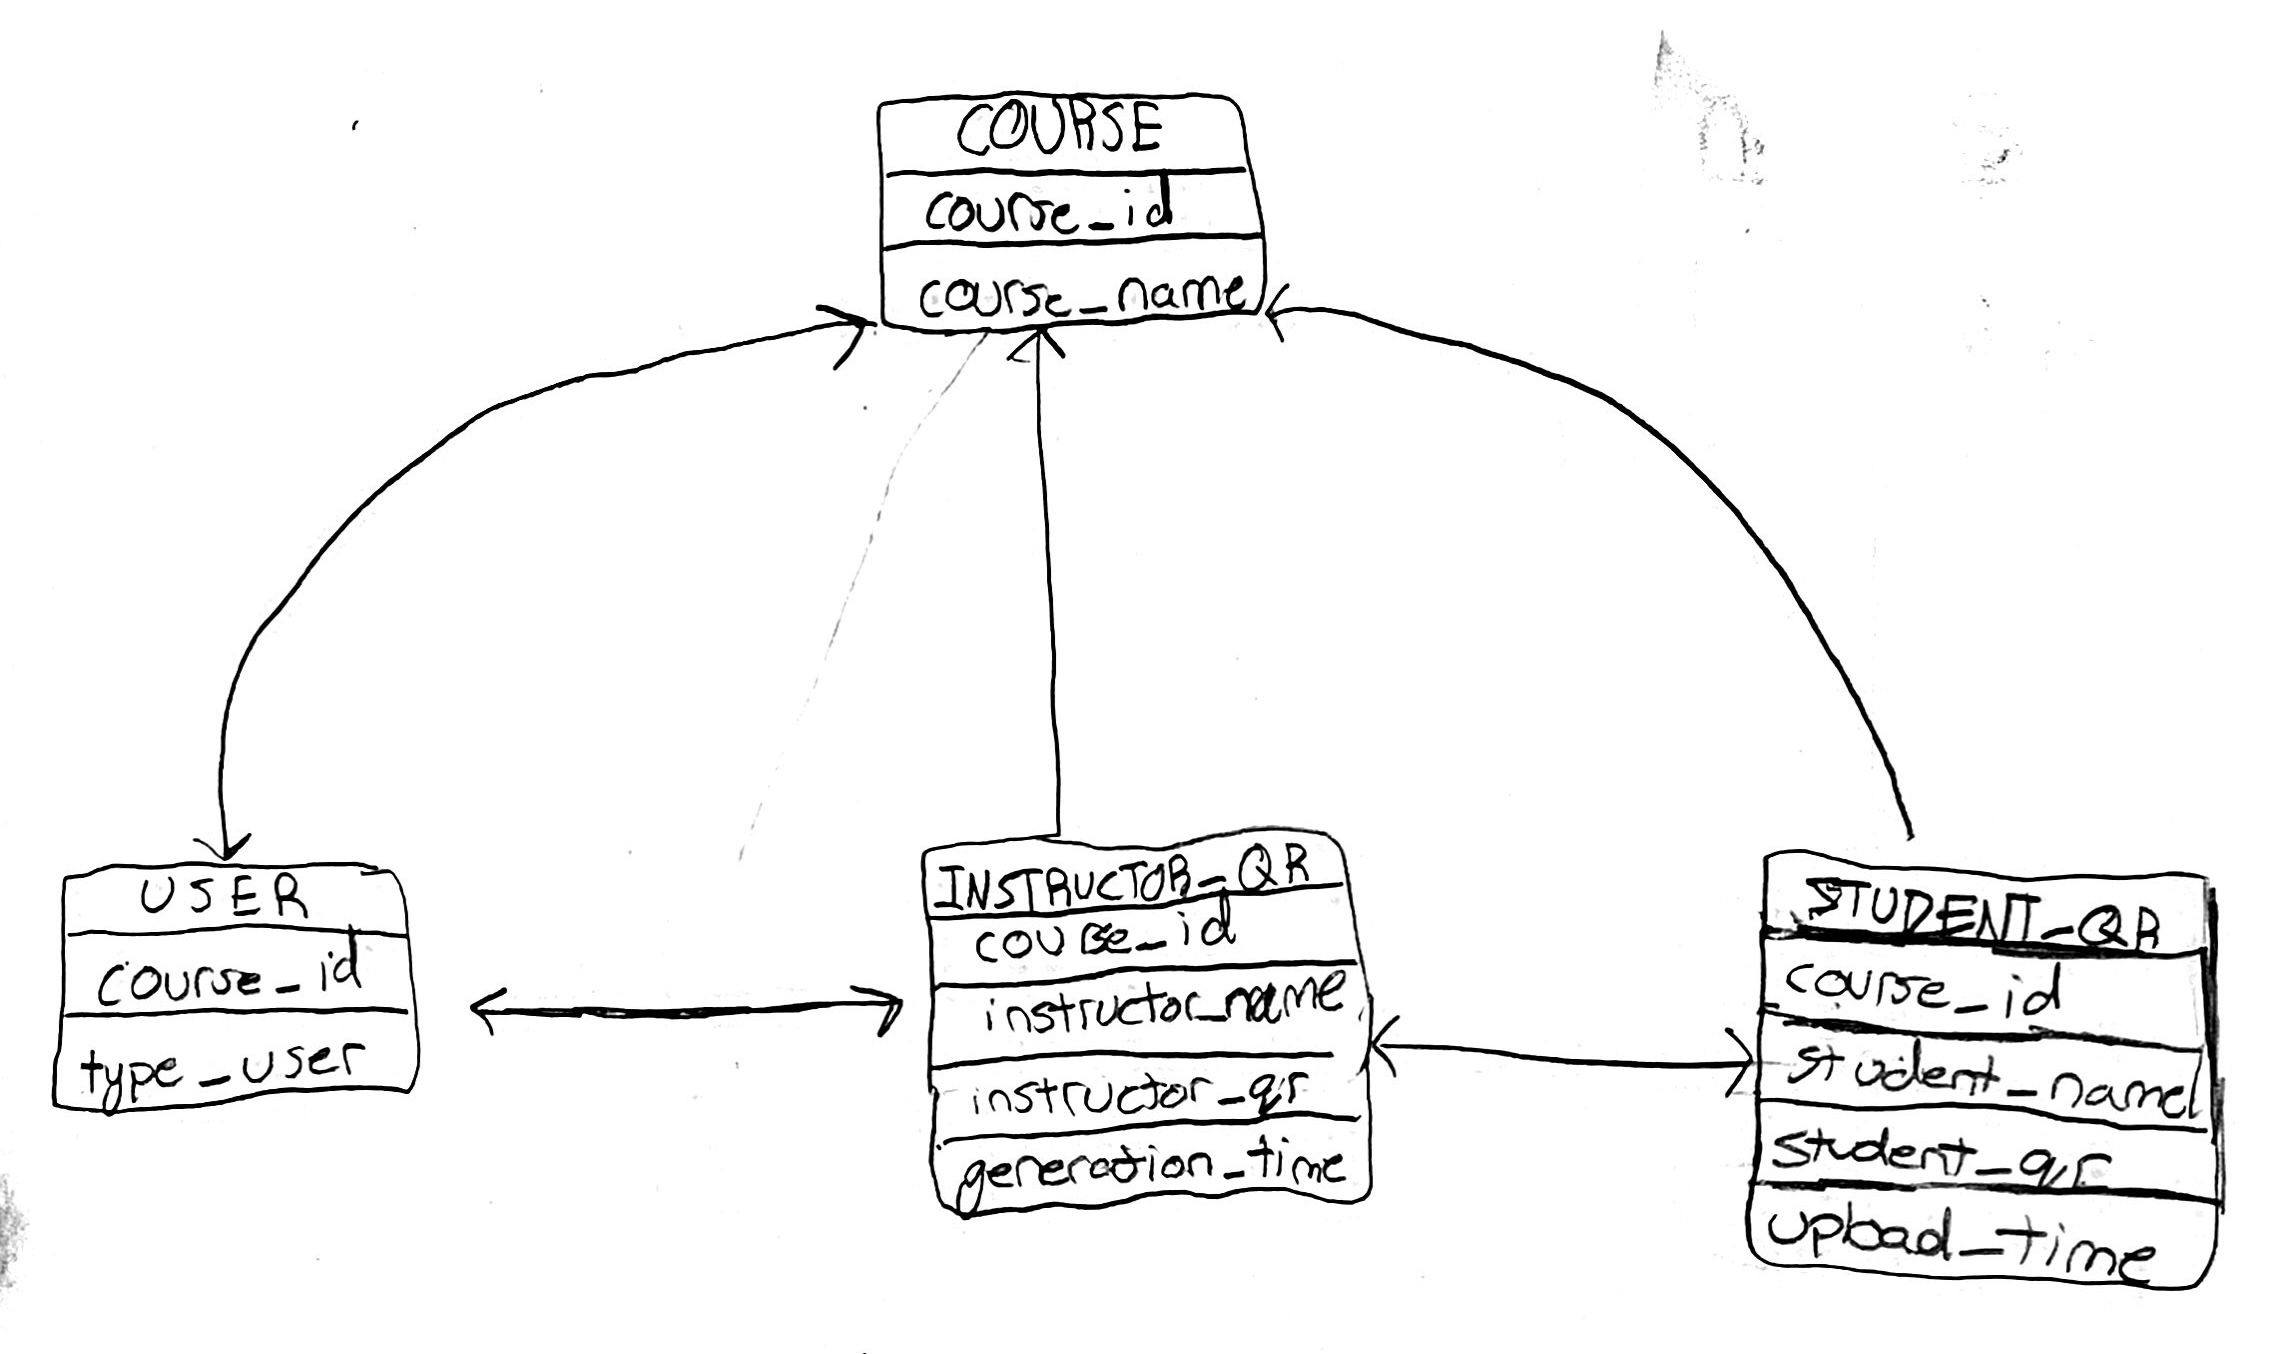 COURSE
course_id
course_name
USER
course_id
type_user
INSTRUCTOR_QR
course_id
instructor_name
instructor_qr
generation_time
STUDENT_QR
course_id
student_name
student_qr
upload_time